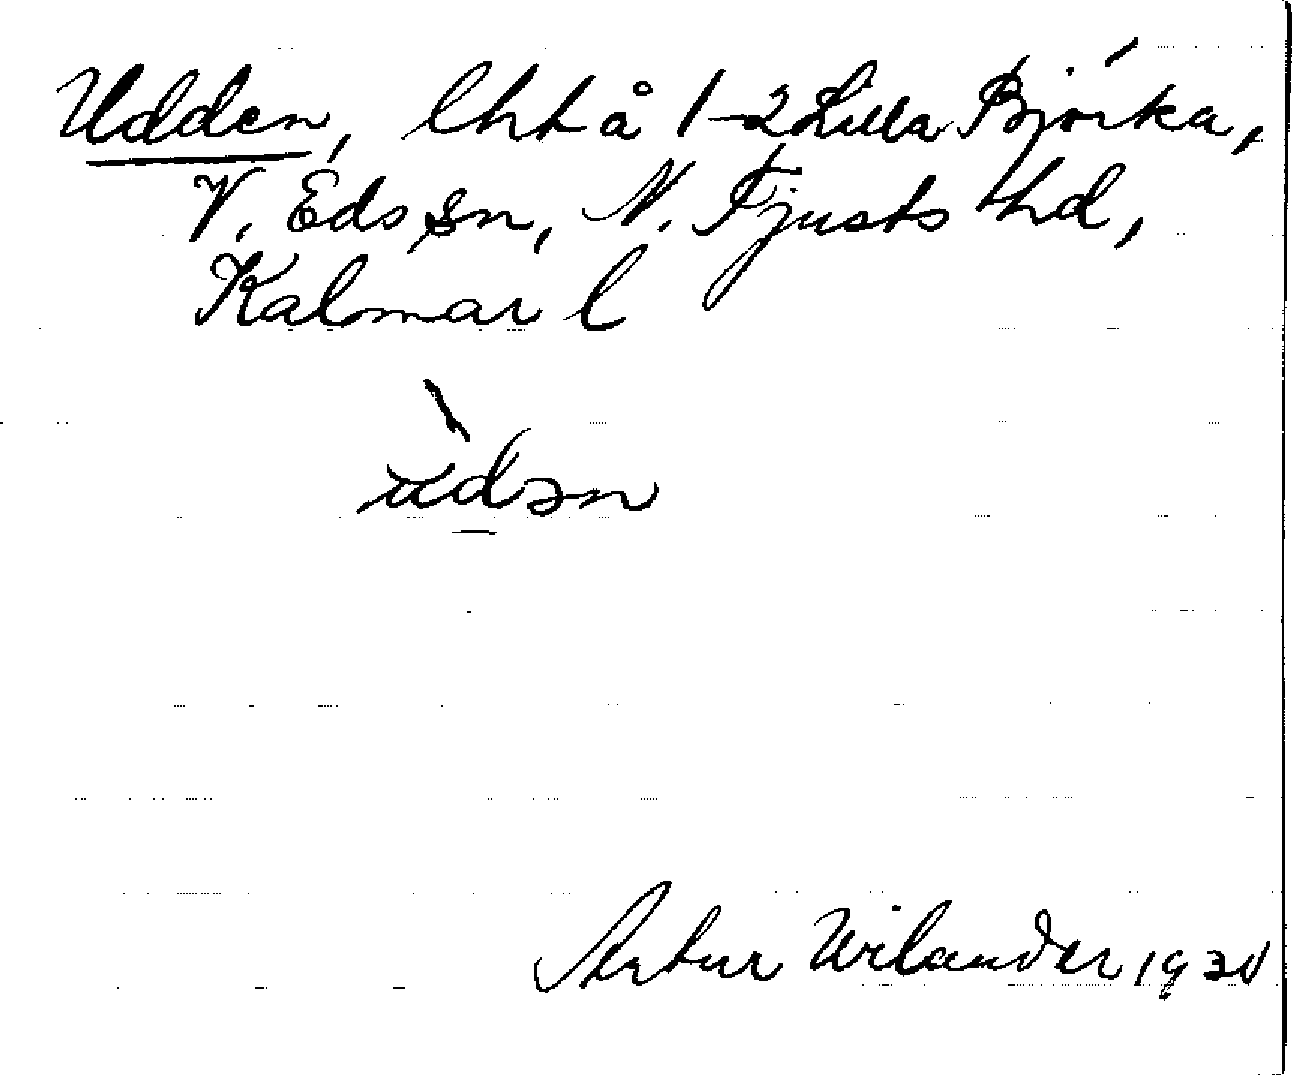 Udden, lht å 1-2 Lilla Björka,
V. Eds sn, N. Tjusts hd,
Kalmar l
ùdən
Artur Wilander 1930